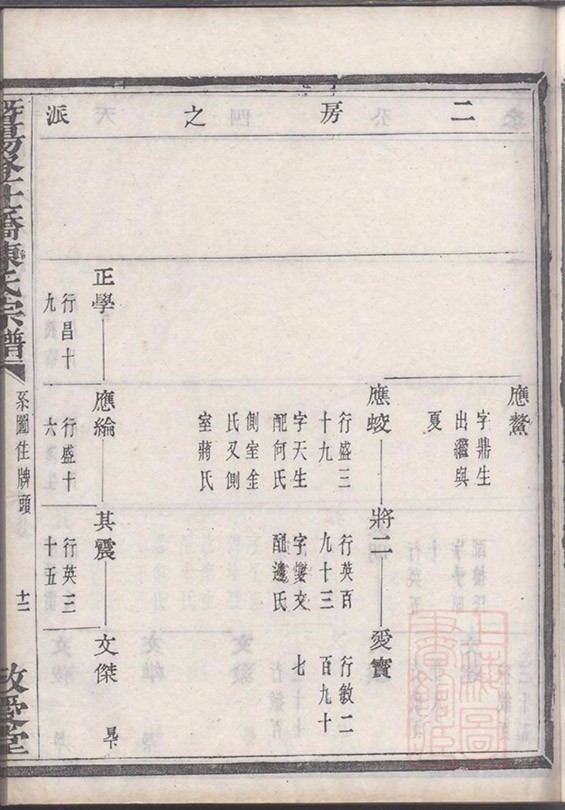 二房之派
應鰲
字鼎生
出繼與
夏
應蛟
行盛三
十九
字天生
配何氏
側室金
氏又側
室蔣氏
將二
行英百
九十三
字變文
配邊氏
愛實
行敏二
百九十
七
正學
行昌十
九
應綸
行盛十
六
其震
行英三
十五
文傑
橋陳氏宗譜
系圖住牌頭
十二
敦愛堂